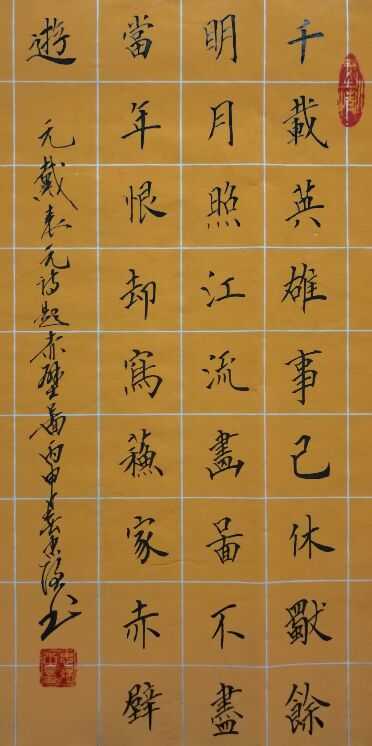 千載英雄事已休獨餘
明月照江流畫啚不盡
當年恨却寫蘓家赤壁
遊
元戴表元詩題赤壁啚丙申春书